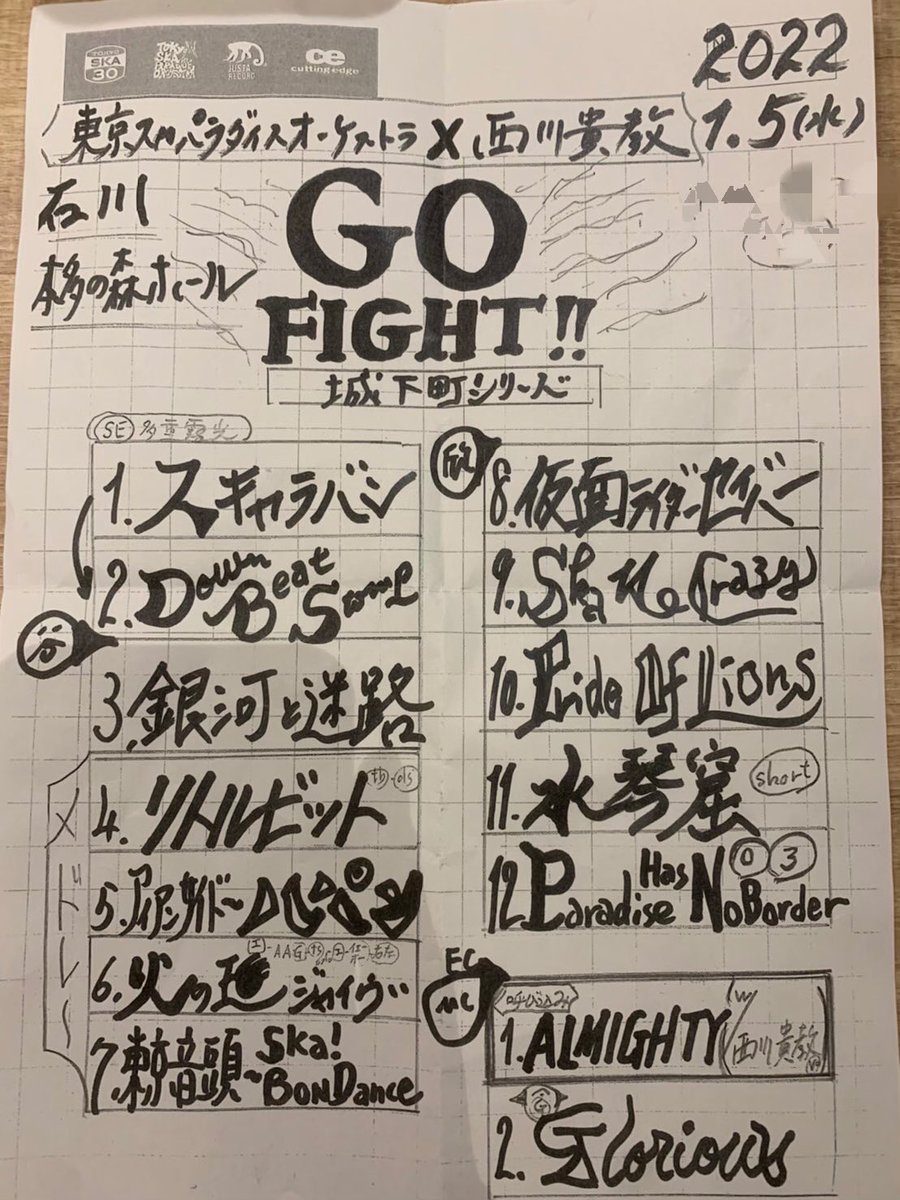 TOKYO
SKA
30
TOKYO
SKA
PARADISE
ORCHESTRA
JUSTA
RECORD
cutting edge
2022
東京スカパラダイスオーケストラ X 西川貴教
1.5(水)
石川
本多の森ホール
GO
FIGHT!!
城下町シリーズ
SE 多重露光
1. スキャラバン
2. Down Beat Stomp
谷
3. 銀河と迷路
メドレー
4. リトルビット
5. アイアンサイド〜ルパン
6. 火の玉ジャイヴ
7. 東京音頭〜Ska! Bon Dance
欣
8. 仮面ライダーセイバー
9. Ska Me Crazy
10. Pride Of Lions
11. 水琴窟 short
12. Paradise Has No Border
0 3
EC
MC
呼び込み
1. ALMIGHTY w/西川貴教
谷
2. Glorious